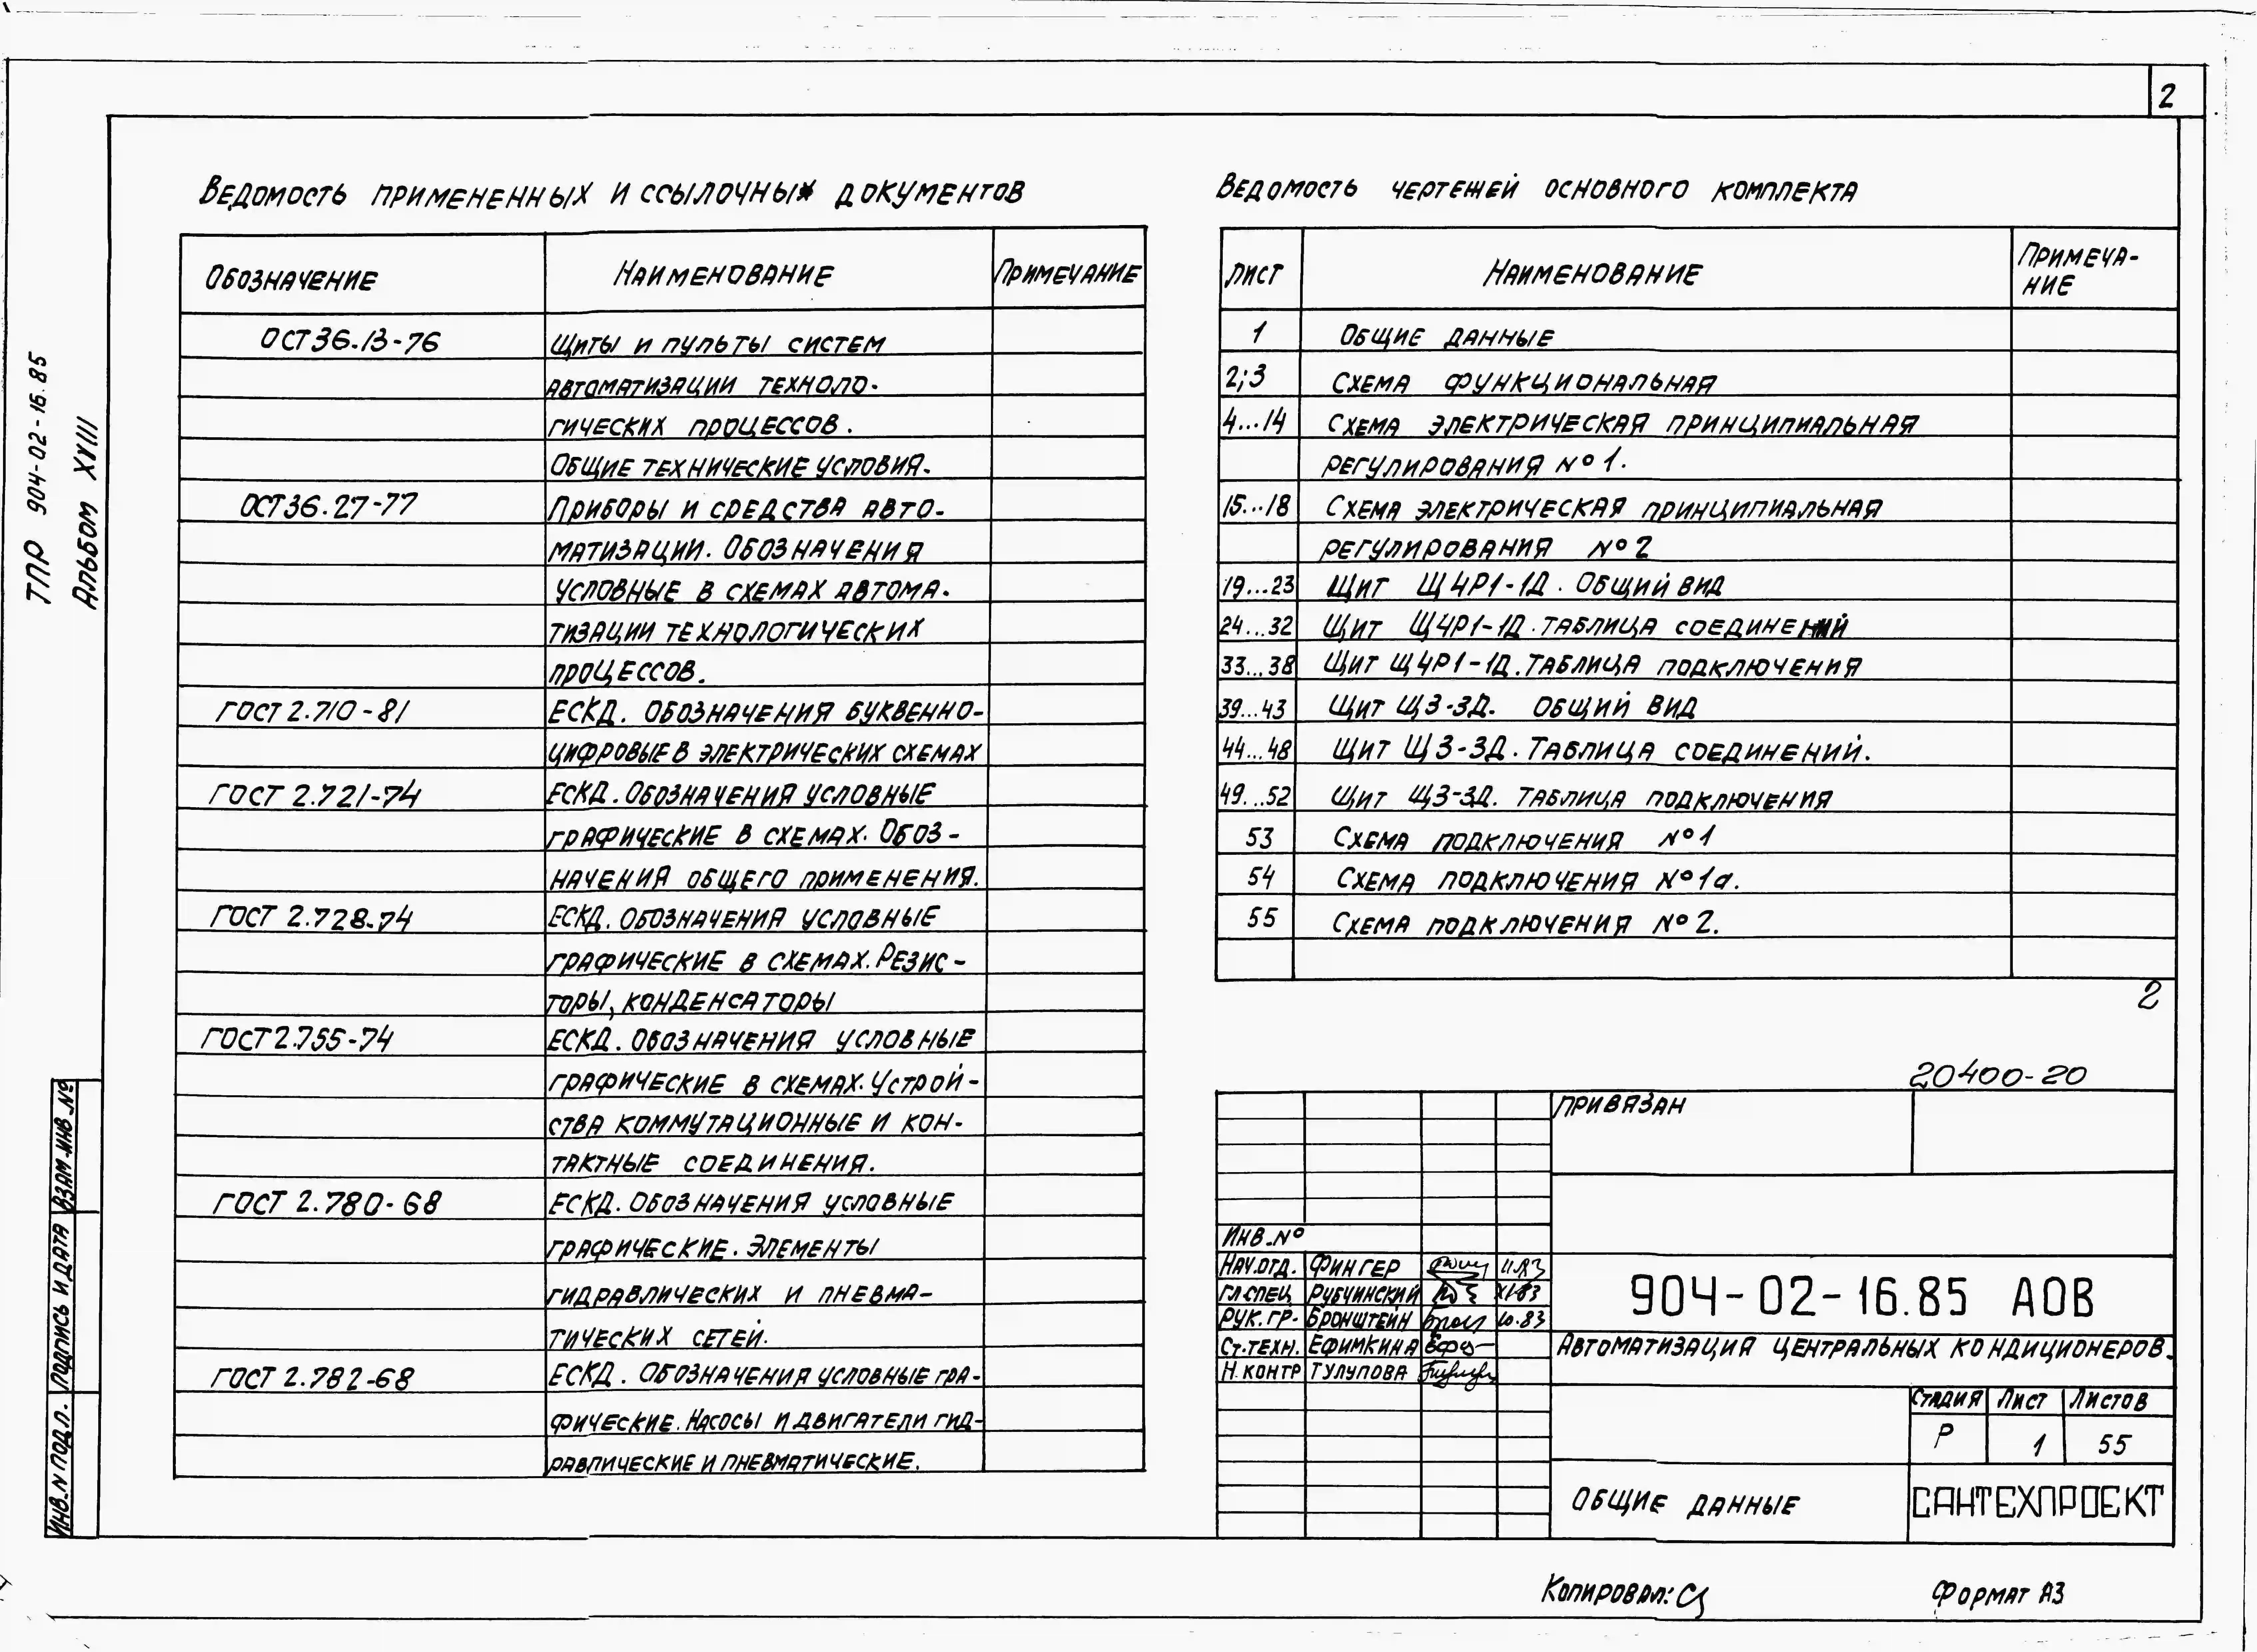 2
ТПР 904-02-16.85
Альбом XVIII
Ведомость примененных и ссылочных документов
Обозначение Наименование Примечание
ОСТ 36.13-76 Щиты и пульты систем
автоматизации техноло-
гических процессов.
Общие технические условия.
ОСТ 36.27-77 Приборы и средства авто-
матизации. Обозначения
условные в схемах автома-
тизации технологических
процессов.
ГОСТ 2.710-81 ЕСКД. Обозначения буквенно-
цифровые в электрических схемах
ГОСТ 2.721-74 ЕСКД. Обозначения условные
графические в схемах. Обоз-
начения общего применения.
ГОСТ 2.728-74 ЕСКД. Обозначения условные
графические в схемах. Резис-
торы, конденсаторы
ГОСТ 2.755-74 ЕСКД. Обозначения условные
графические в схемах. Устрой-
ства коммутационные и кон-
тактные соединения.
ГОСТ 2.780-68 ЕСКД. Обозначения условные
графические. Элементы
гидравлических и пневма-
тических сетей.
ГОСТ 2.782-68 ЕСКД. Обозначения условные гра-
фические. Насосы и двигатели гид-
равлические и пневматические.
Ведомость чертежей основного комплекта
Лист Наименование Примеча-
ние
1 Общие данные
2;3 Схема функциональная
4...14 Схема электрическая принципиальная
регулирования №1.
15...18 Схема электрическая принципиальная
регулирования №2
19...23 Щит Щ4Р1-1Д. Общий вид
24...32 Щит Щ4Р1-1Д. Таблица соединений
33...38 Щит Щ4Р1-1Д. Таблица подключения
39...43 Щит Щ3-3Д. Общий вид
44...48 Щит Щ3-3Д. Таблица соединений.
49...52 Щит Щ3-3Д. Таблица подключения
53 Схема подключения №1
54 Схема подключения №1а.
55 Схема подключения №2.
2
20400-20
Привязан
Инв.№
Нач.отд. Фингер 11.83
Гл спец Рубчинский XI-83
Рук. гр. Бронштейн 10.83
Ст.техн. Ефимкина
Н.контр Тулупова
904-02-16.85 АОВ
Автоматизация центральных кондиционеров.
Стадия Лист Листов
Р 1 55
Общие данные
САНТЕХПРОЕКТ
Инв.№ подл. Подпись и дата Взам.инв.№
Копировал:
Формат А3